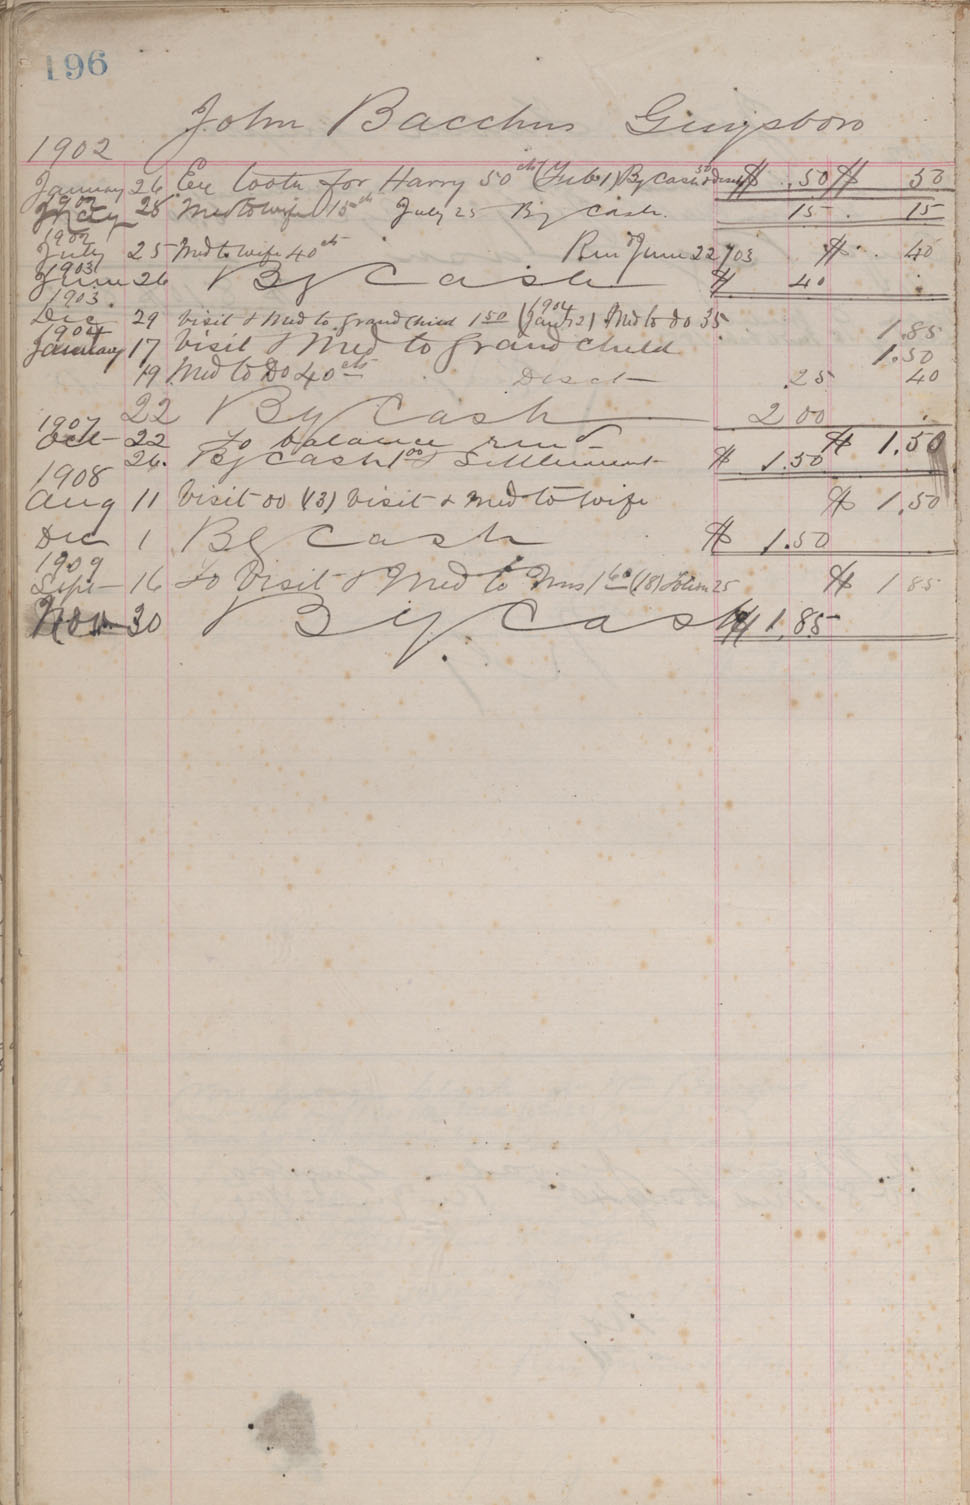 196
John Bacchus Guysboro
1902
January 26 Ex tooth for Harry 50 cts (Feb 1) By Cash 50 $ .50 $ 50
1902
July 25 Med to wife 15 cts July 25 By Cash. 15 15
1902
July 25 Med to wife 40 cts Ren June 22/03 $ . 40
1903
June 26 By Cash $ 40
1903
Dec 29 Visit & Med to Grand Child 1 50 (1904 Jany 2) Med to do 35 1.85
1904
January 17 Visit & Med to Grand child 1.50
19 Med to Do 40 cts Disct .25 40
22 By Cash 2 00
1907
Oct 22 To balance rend $ 1.50
26. By Cash 1 00 & Settlement $ 1.50
1908
Aug 11 Visit 00 (13) Visit & Med to wife $ 1.50
Dec 1 By Cash $ 1.50
1909
Sept 16 To Visit & Med to Mrs 1 60 (18) 25 $ 1 85
Nov 30 By Cash $ 1.85